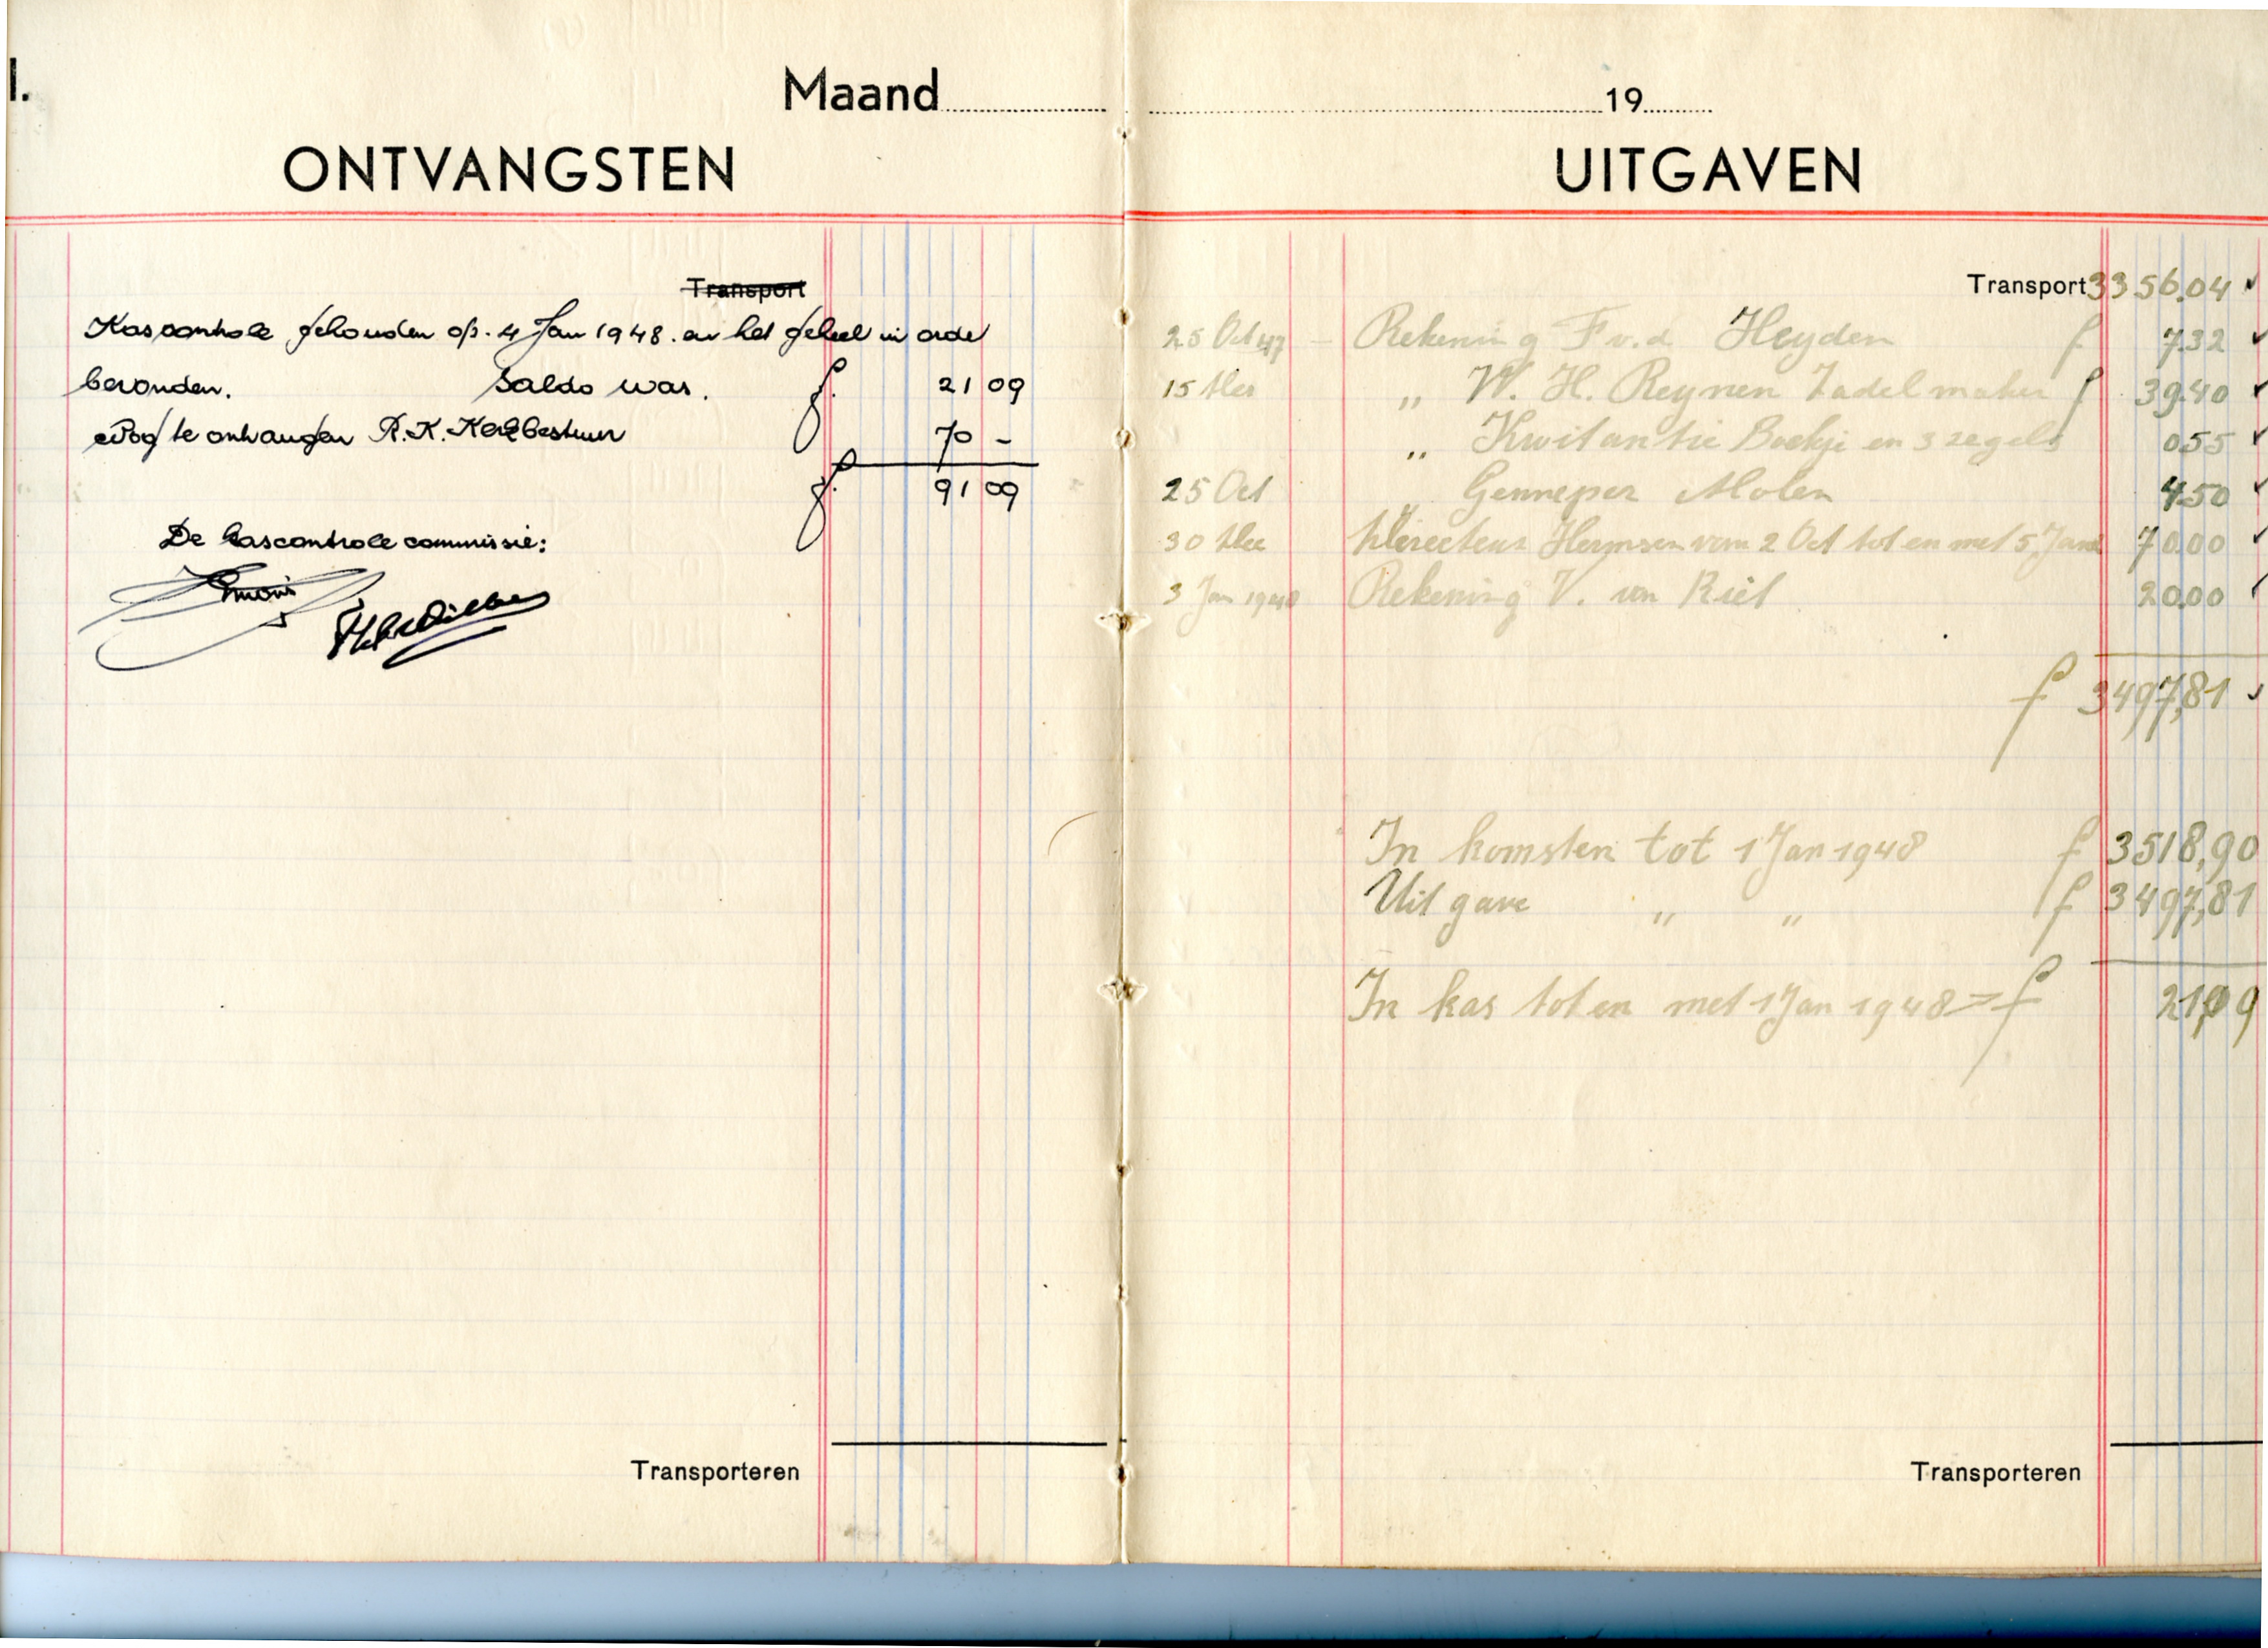 I.
Maand 19
ONTVANGSTEN
Transport
Kascontrole gehouden op. 4 Jan 1948. en het geheel in orde
bevonden. Saldo was. f. 21 09
Nog te ontvangen R.K. Kerkbestuur 70 -
f. 91 09
De kascontrole commissie:
UITGAVEN
Transport 3356.04
25 Oct 47 - Rekening F v.d. Heyden f 7.32
15 Dec „ W. H. Reynen Zadelmaker f 39.40
„ Kwitantie Boekje en 3 zegels 0.55
25 Oct „ Genneper Molen 4.50
30 Dec Directeur Hermsen van 2 Oct tot en met 5 Jan 70.00
3 Jan 1948 Rekening V. van Riet 20.00
f 3497,81
In komsten tot 1 Jan 1948 f 3518,90
Uit gave „ „ f 3497,81
In kas tot en met 1 Jan 1948 = f 21,09
Transporteren
Transporteren